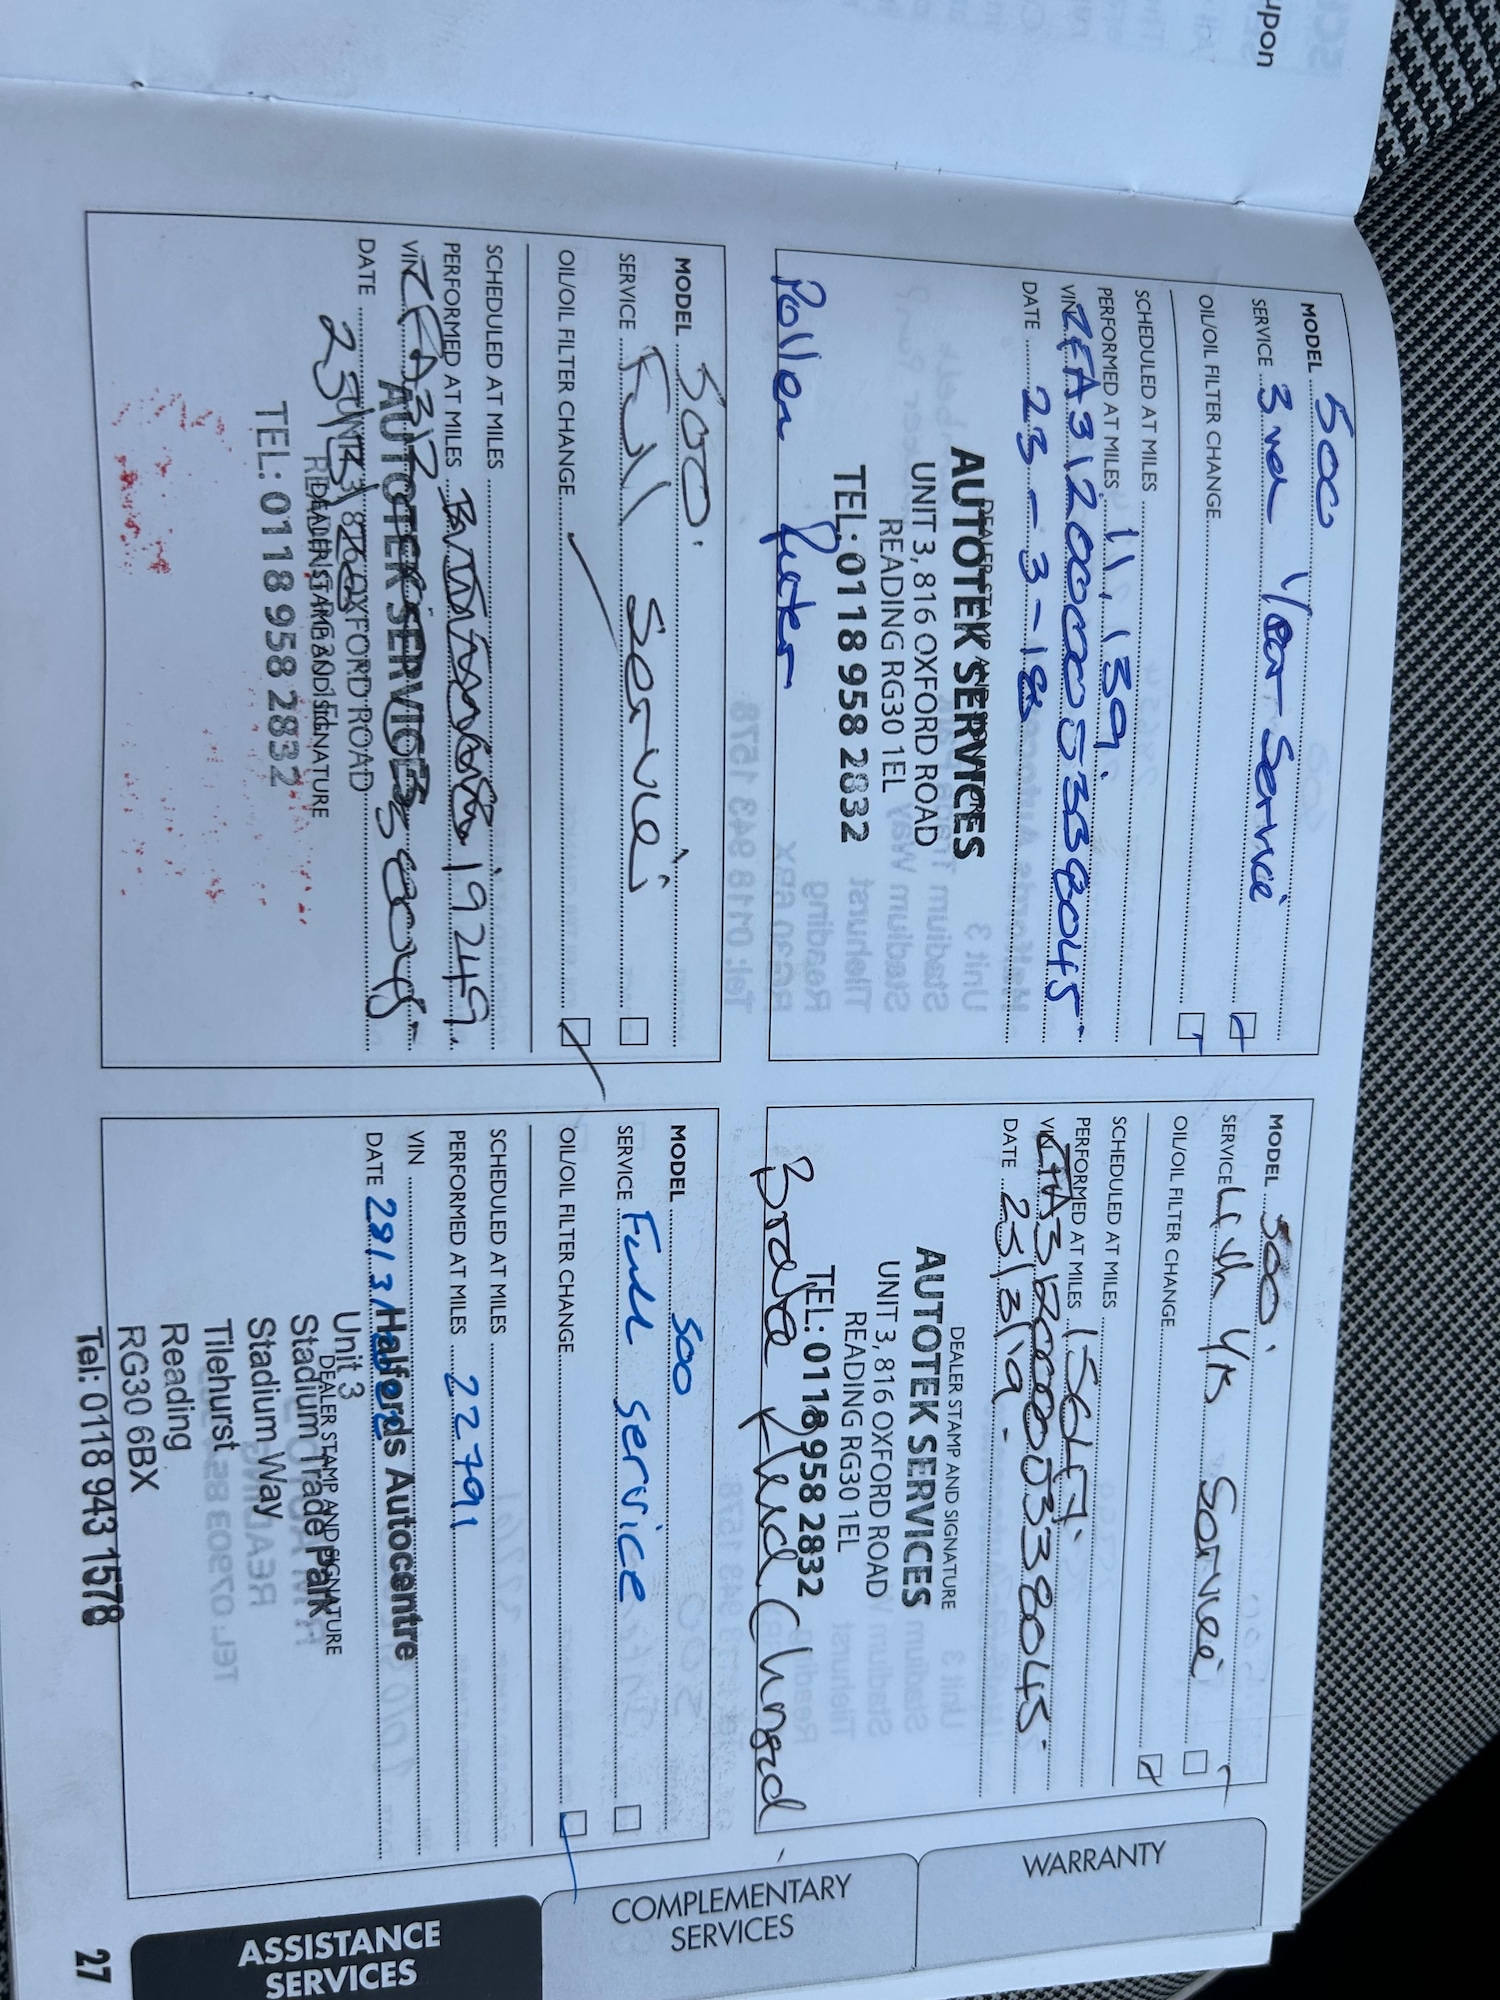 upon
MODEL 500
SERVICE 3 Year Service
OIL/OIL FILTER CHANGE
SCHEDULED AT MILES
PERFORMED AT MILES 11,139.
VIN ZFA31200000533B045
DATE 23-3-18
DEALER STAMP AND SIGNATURE
AUTOTEK SERVICES
UNIT 3, 816 OXFORD ROAD
READING RG30 1EL
TEL: 0118 958 2832
Pollen
MODEL 500.
SERVICE 4th Yrs Service
OIL/OIL FILTER CHANGE
SCHEDULED AT MILES
PERFORMED AT MILES
VIN
DATE 23/3/19
DEALER STAMP AND SIGNATURE
AUTOTEK SERVICES
UNIT 3, 816 OXFORD ROAD
READING RG30 1EL
TEL: 0118 958 2832
Brake Fluid Changed
MODEL 500.
SERVICE Full Service
OIL/OIL FILTER CHANGE
SCHEDULED AT MILES
PERFORMED AT MILES 19249
VIN
DATE
AUTOTEK SERVICES
UNIT 3, 816 OXFORD ROAD
DEALER STAMP AND SIGNATURE
TEL: 0118 958 2832
MODEL 500
SERVICE Full Service
OIL/OIL FILTER CHANGE
SCHEDULED AT MILES
PERFORMED AT MILES 22791
VIN
DATE 28/3/
Halfords Autocentre
Unit 3
DEALER STAMP AND SIGNATURE
Stadium Trade Park
Stadium Way
Tilehurst
Reading
RG30 6BX
Tel: 0118 943 1578
WARRANTY
COMPLEMENTARY
SERVICES
ASSISTANCE
SERVICES
27